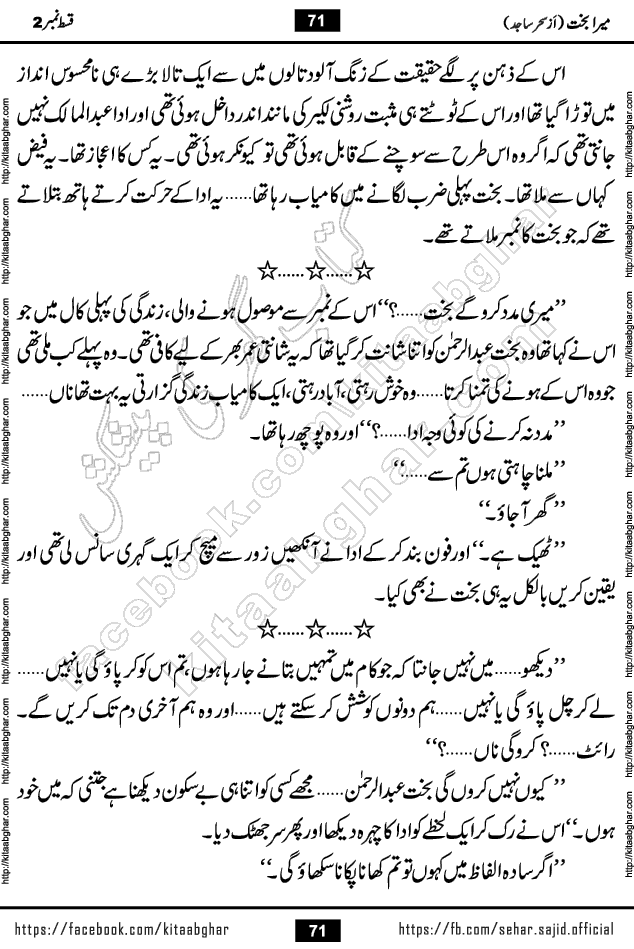 میرا بخت (از سحر ساجد)
71
قسط نمبر 2
اس کے ذہن پر لگے حقیقت کے زنگ آلود تالوں میں سے ایک تالا بڑے ہی نامحسوس انداز
میں توڑا گیا تھا اور اس کے ٹوٹتے ہی مثبت روشنی لکیر کی مانند اندر داخل ہوئی تھی اور ادا عبدالمالک نہیں
جانتی تھی کہ اگر وہ اس طرح سے سوچنے کے قابل ہوئی تھی تو کیونکر ہوئی تھی۔ یہ کس کا اعجاز تھا۔ یہ فیض
کہاں سے ملا تھا۔ بخت پہلی ضرب لگانے میں کامیاب رہا تھا...... یہ ادا کے حرکت کرتے ہاتھ بتلاتے
تھے کہ جو بخت کا نمبر ملاتے تھے۔
☆......☆......☆
”میری مدد کرو گے بخت......؟“ اس کے نمبر سے موصول ہونے والی، زندگی کی پہلی کال میں جو
اس نے کہا تھا وہ بخت عبدالرحمٰن کو اتنا شانت کر گیا تھا کہ یہ شانتی عمر بھر کے لیے کافی تھی۔ وہ پہلے کب ملی تھی
جو وہ اس کے ہونے کی تمنا کرتا...... وہ خوش رہتی، آباد رہتی، ایک کامیاب زندگی گزارتی یہ بہت تھا ناں......
”مدد نہ کرنے کی کوئی وجہ ادا......؟“ اور وہ پوچھ رہا تھا۔
”ملنا چاہتی ہوں تم سے......“
”گھر آ جاؤ۔“
”ٹھیک ہے۔“ اور فون بند کر کے ادا نے آنکھیں زور سے میچ کر ایک گہری سانس لی تھی اور
یقین کریں بالکل یہ ہی بخت نے بھی کیا۔
☆......☆......☆
”دیکھو...... میں نہیں جانتا کہ جو کام میں تمہیں بتانے جا رہا ہوں، تم اس کو کر پاؤ گی یا نہیں......
لے کر چل پاؤ گی یا نہیں...... ہم دونوں کوشش کر سکتے ہیں...... اور وہ ہم آخری دم تک کریں گے۔
رائٹ......؟ کرو گی ناں......؟“
”کیوں نہیں کروں گی بخت عبدالرحمٰن...... مجھے کسی کو اتنا ہی بے سکون دیکھنا ہے جتنی کہ میں خود
ہوں۔“ اس نے رک کر ایک لحظے کو ادا کا چہرہ دیکھا اور پھر سر جھٹک دیا۔
”اگر سادہ الفاظ میں کہوں تو تم کھانا پکانا سکھاؤ گی۔“
https://facebook.com/kitaabghar
71
https://fb.com/sehar.sajid.official
http://kitaabghar.com
کتاب گھر کی پیشکش
facebook.com/kitaabghar
kitaabghar.com